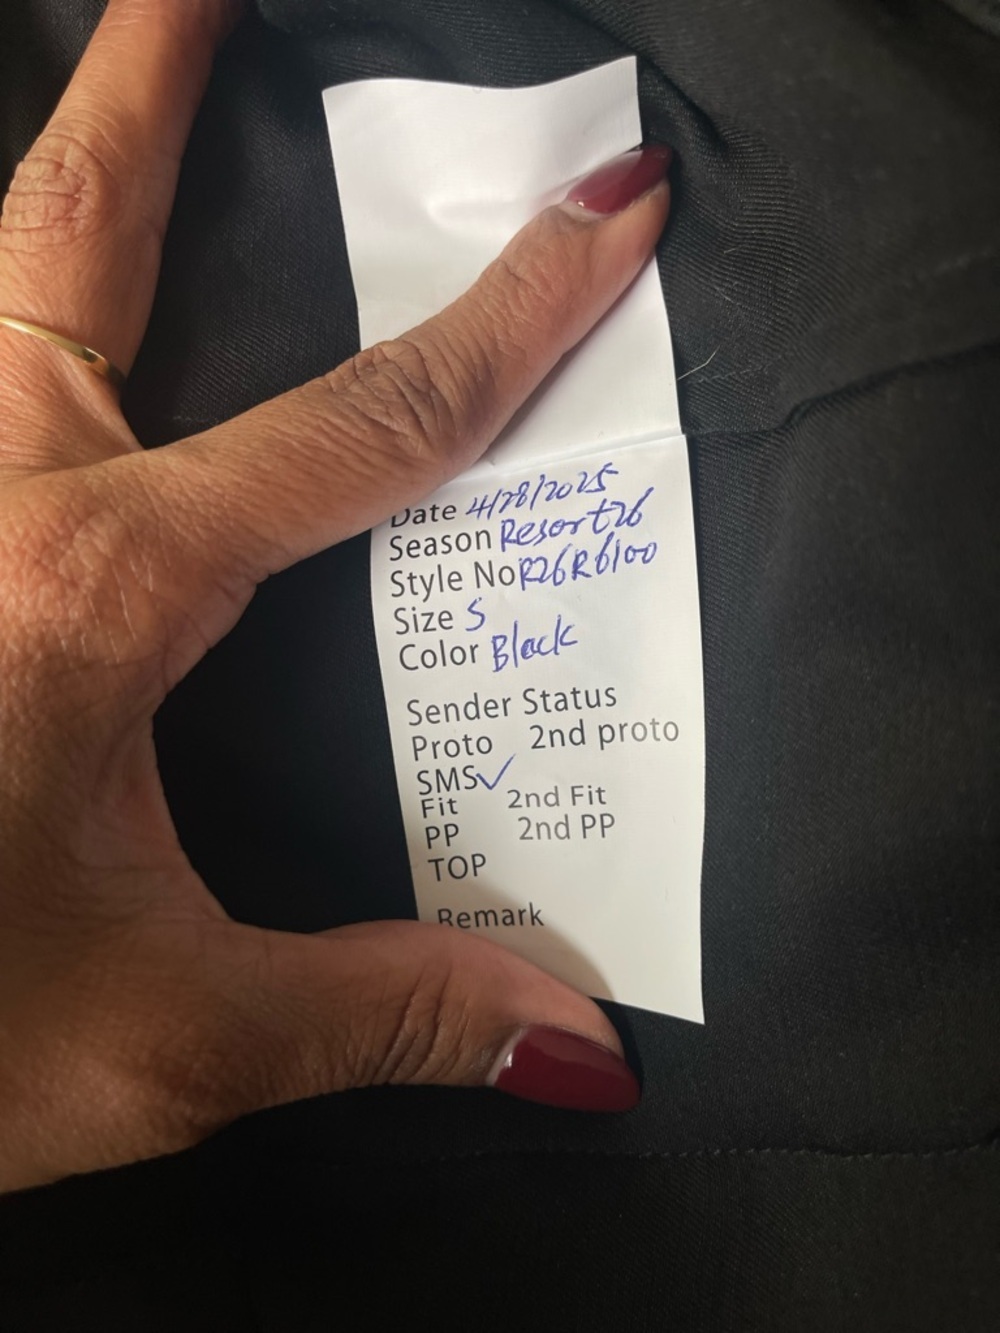 Date 4/28/2025
Season Resort26
Style No R26R6100
Size S
Color Black
Sender Status
Proto 2nd proto
SMS✓
Fit 2nd Fit
PP 2nd PP
TOP
Remark